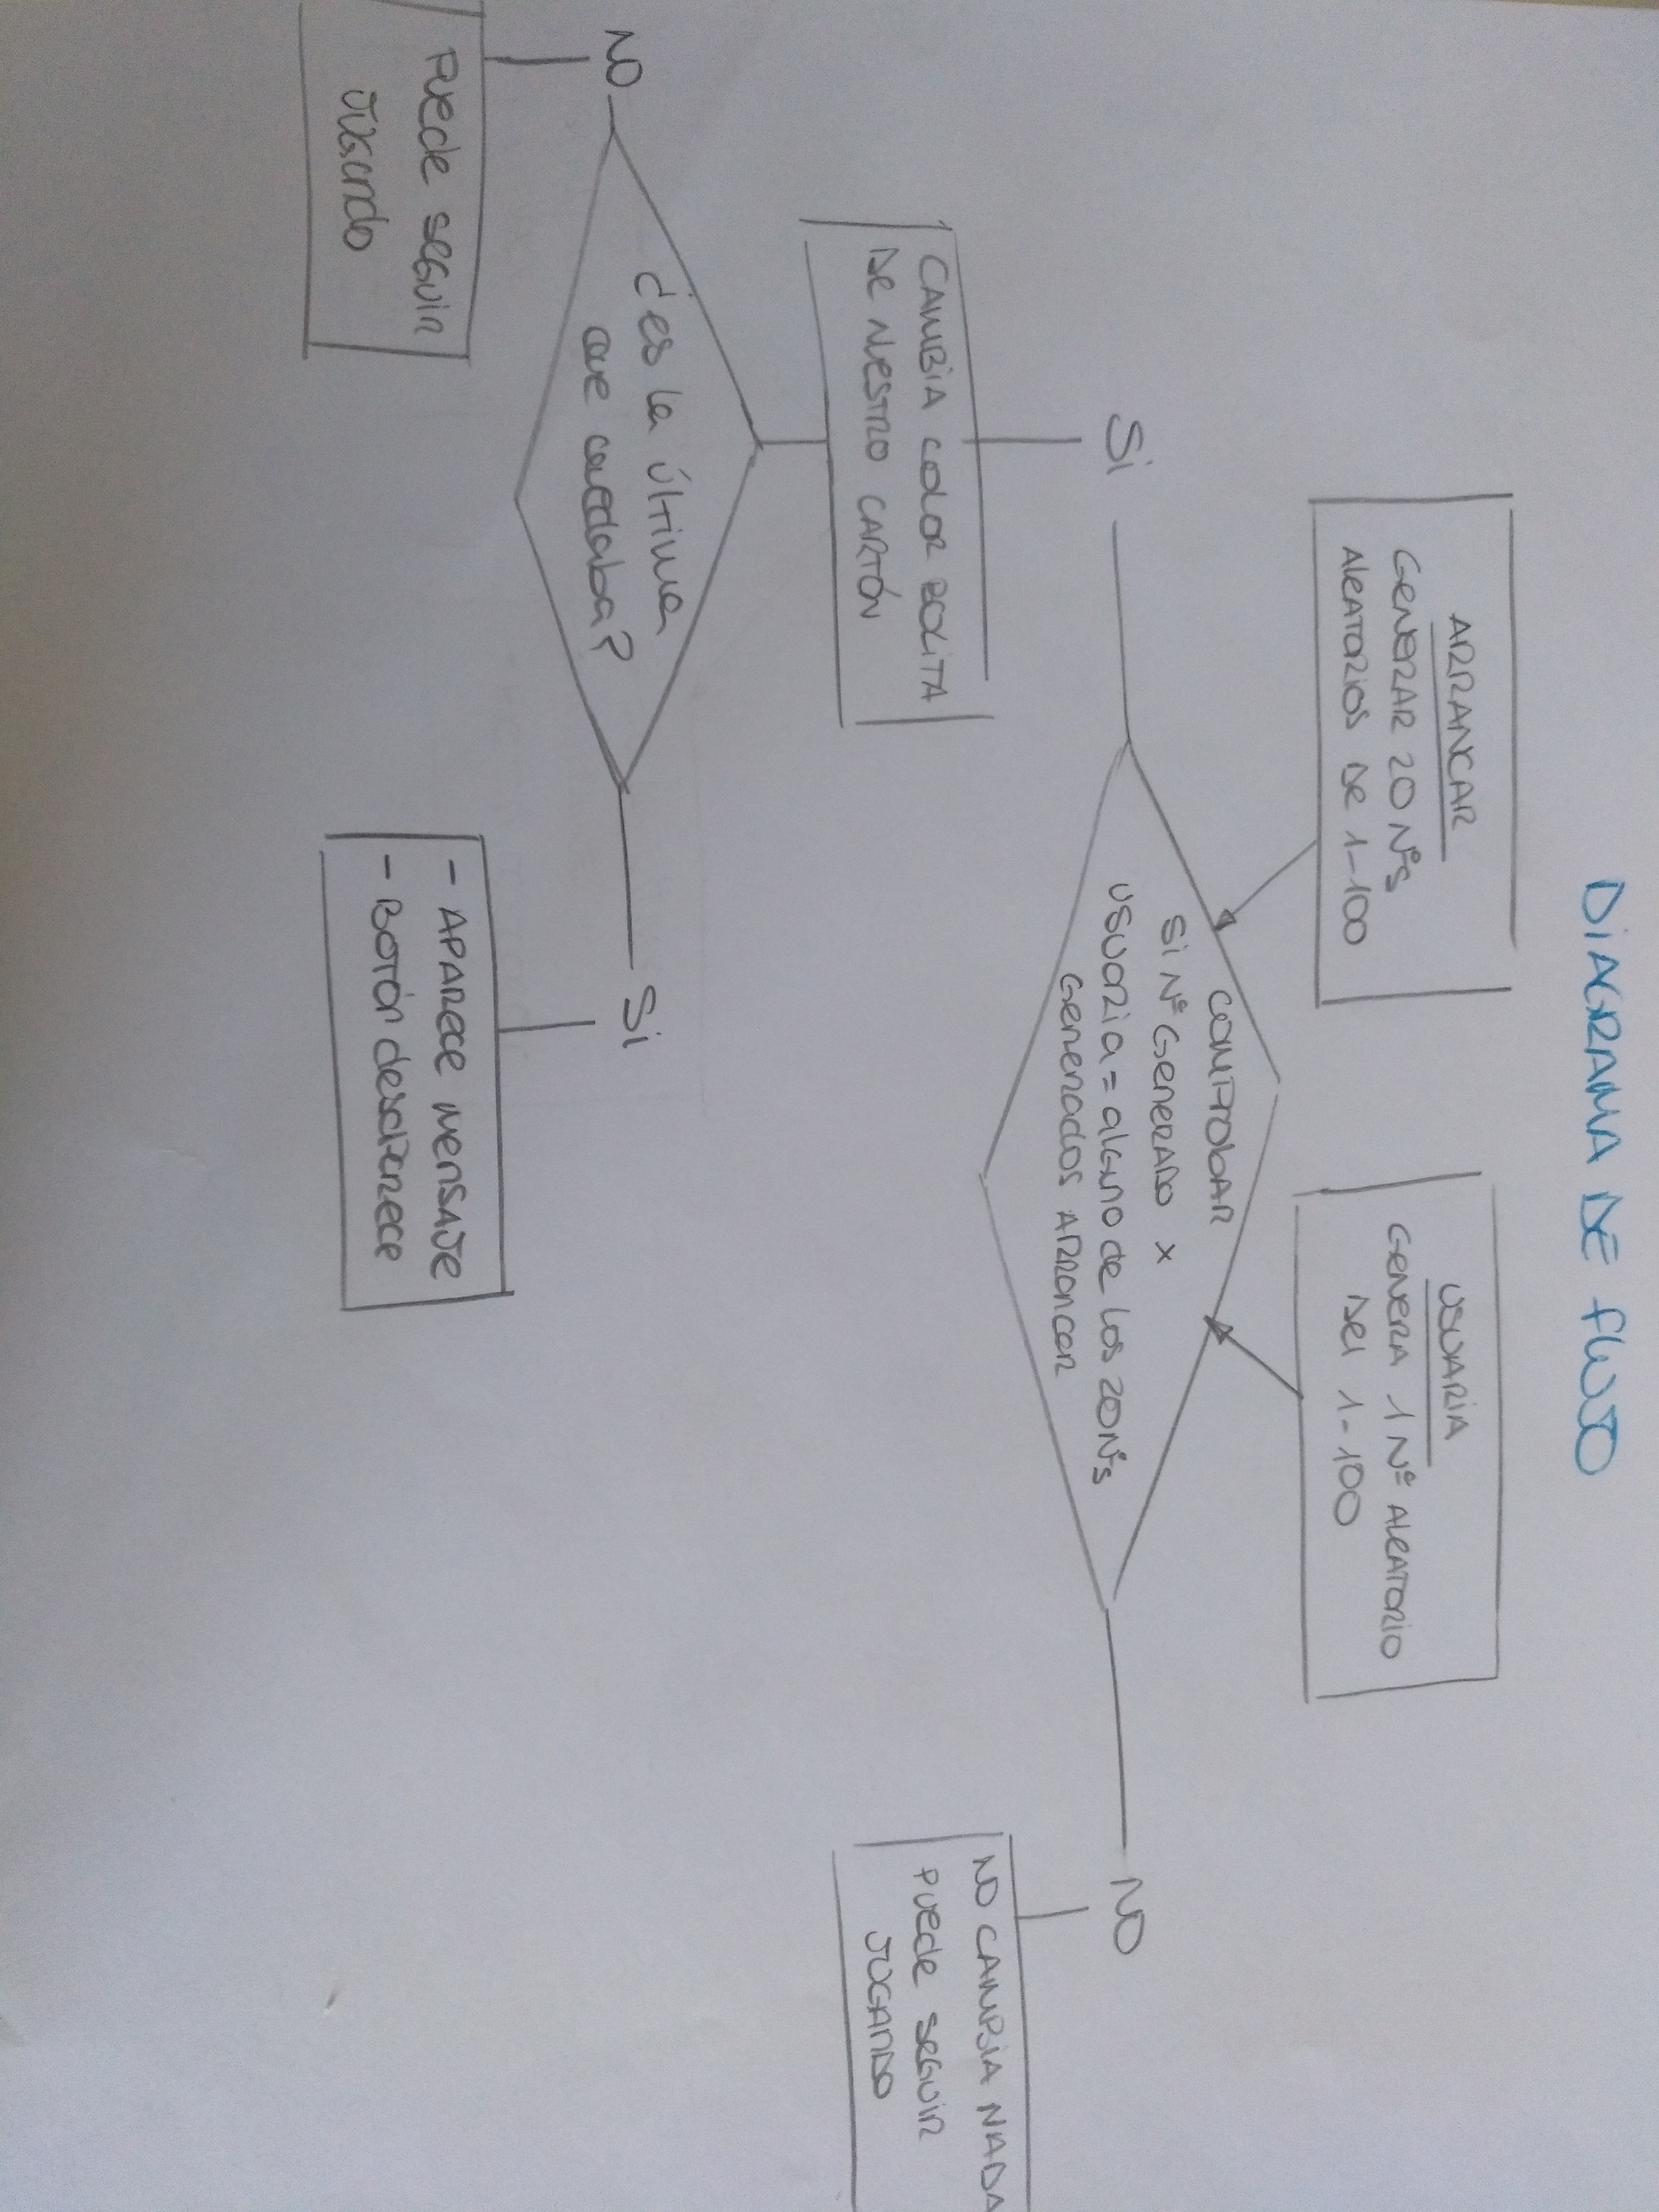 DIAGRAMA DE FLUJO
ARRANCAR
GENERAR 20 NºS
ALEATORIOS DE 1-100
USUARIA
GENERA 1 Nº ALEATORIO
DEL 1-100
COMPROBAR
Si Nº GENERADO x
USUARIA = alguno de los 20 Nºs
Generados ARRANCAR
Si
NO
CAMBIA COLOR BOLITA
DE NUESTRO CARTÓN
NO CAMBIA NADA
PUEDE SEGUIR
JUGANDO
¿es la última
que quedaba?
NO
Si
PUEDE SEGUIR
JUGANDO
- APARECE MENSAJE
- BOTÓN desaparece